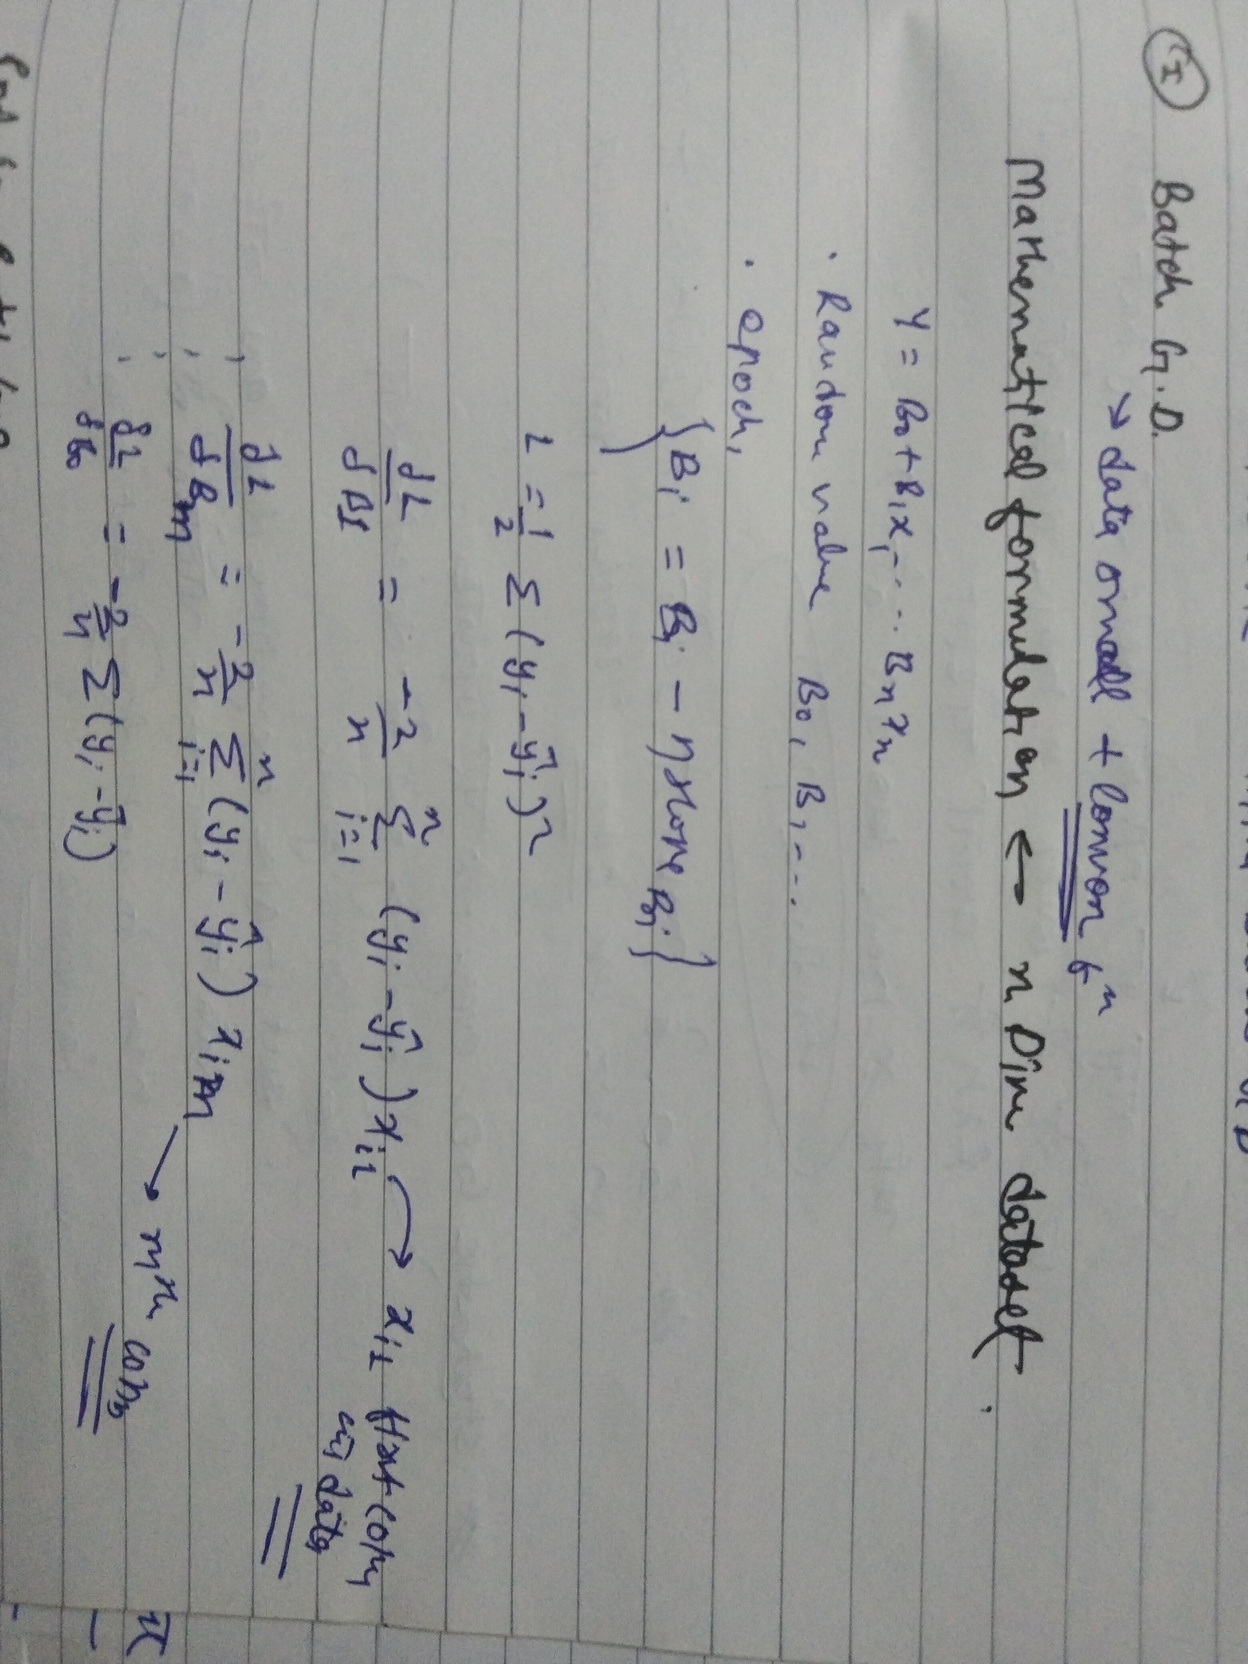 (I) Batch G.D.
→ data small + convex fⁿ
Mathematical formulation ← n Dim dataset.
Y = B₀ + B₁x₁ - - . . Bₙxₙ
· Random value B₀, B₁ - - .
· epoch,
{ Bᵢ = Bᵢ - η slope Bᵢ }
L = 1/2 Σ (yᵢ - ŷᵢ)²
∂L/∂B1 = -2/n Σⁿᵢ₌₁ (yᵢ - ŷᵢ) xᵢ₁ → xᵢ₁ data
∂L/∂Bm = -2/n Σⁿᵢ₌₁ (yᵢ - ŷᵢ) xᵢm → mᵗʰ
∂L/∂B₀ = -2/n Σ (yᵢ - ŷᵢ)